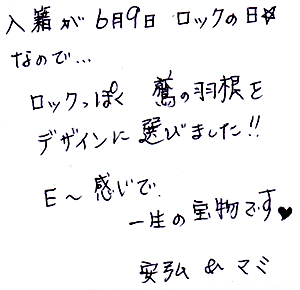 入籍が 6月9日 ロックの日☆
なので…
ロックっぽく 鷲の羽根を
デザインに 選びました!!
E〜 感じで
一生の宝物です♥
安弘 & マミ